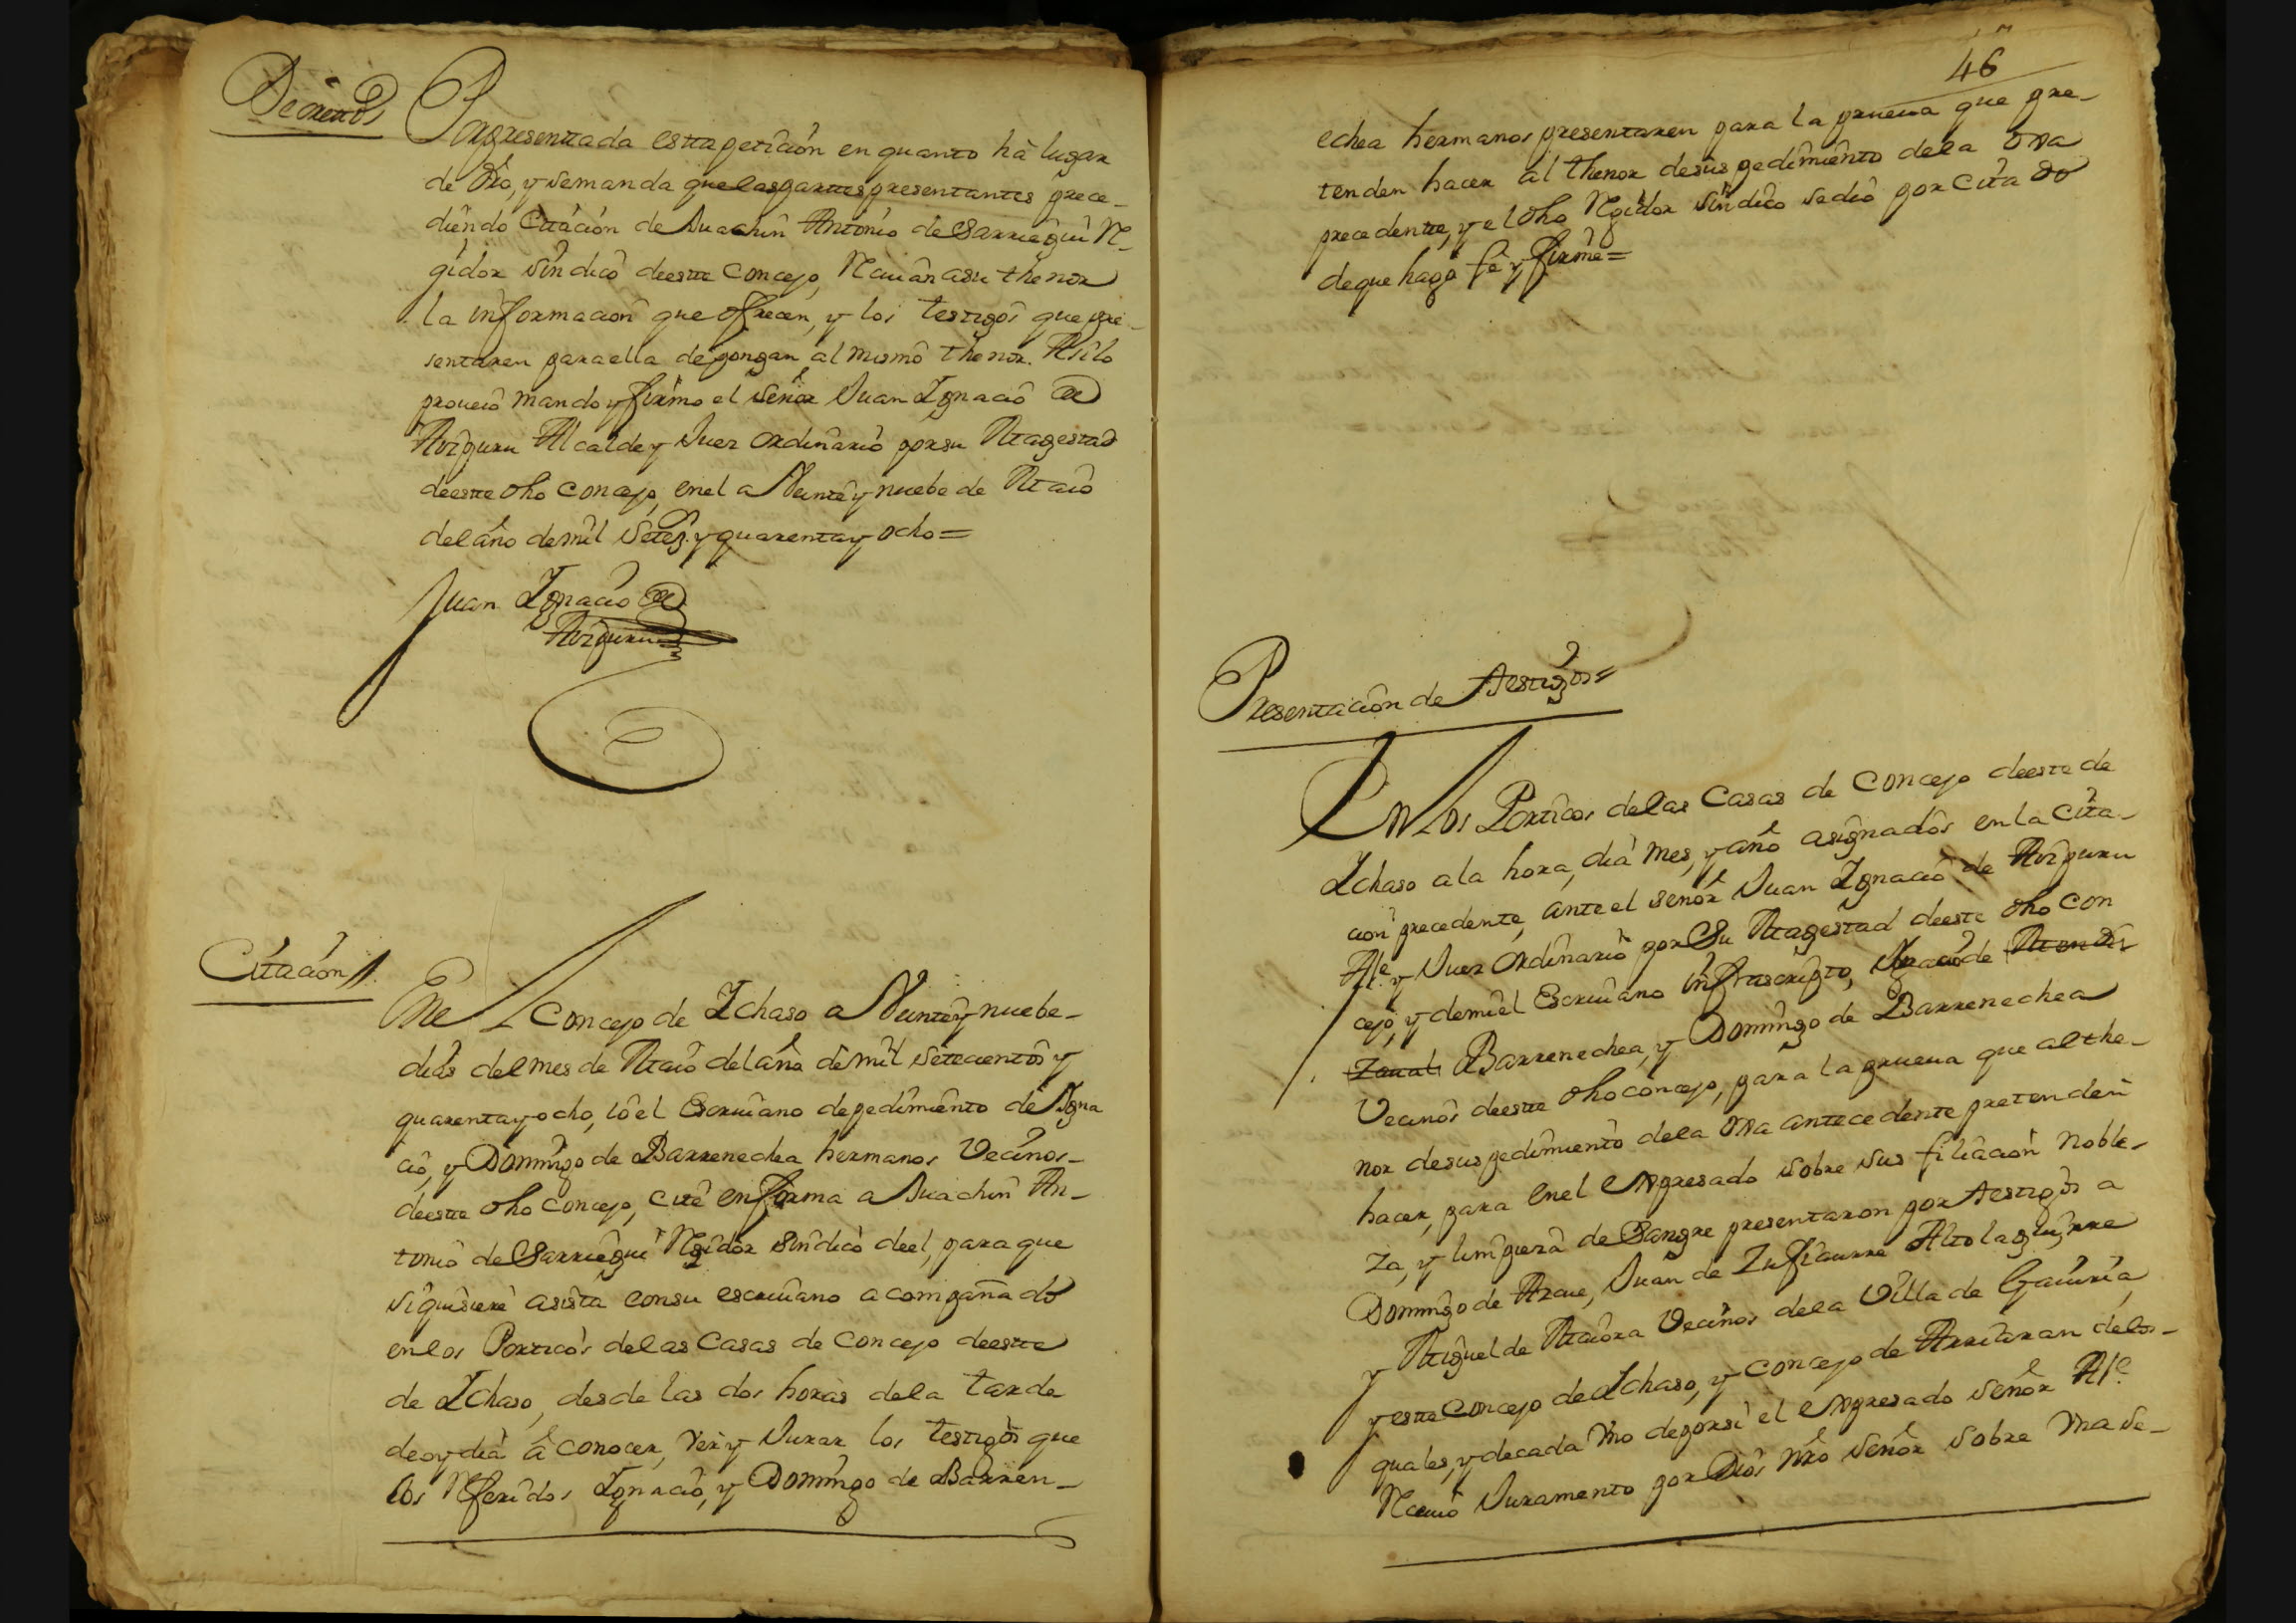 Decretto
Por presenttada estta peticion en quanto há lugar
de dro, y se manda que las parttes presentantes prece-
diendo Citacion de Juachin Antonio de Sarriegui Re-
gidor sindico de estte Concejo, Reciuan a su thenor
la informacion que ofrecen, y los testigos que pre-
sentaren para ella depongan al mismo thenor. Asi lo
proueio mando y firmo el señor Juan Ignacio de
Aozpuru Alcalde y Juez ordinario por su Magestad
de estte dho Concejo, en el a Veinte y nuebe de Maio
del año de mil setez.s y quarenta y ocho =
Juan Ignacio de
Aozpuru
Citacion
En el Concejo de Ichaso a Veinte y nuebe-
dias del mes de Maio del año de mil setecientos y
quarenta y ocho, io el Escriuano de pedimiento de Igna
cio, y Domingo de Barrenechea hermanos Vecinos-
de estte dho Concejo, cité en forma a Juachin An-
tonio de Sarriegui Regidor sindico de el, para que
si quisiere asista con su escriuano acompañado
en los Porticos de las Casas de Concejo de estte
de Ichaso, desde las dos horas de la tarde
de oy dia â conocer, ver y Jurar los testigos que
los Referidos Ignacio, y Domingo de Barren-
46
echea hermanos presentaren para la prueua que pre-
tenden hacer al thenor de sus pedimiento de la ora
precedentte, y el dho Regidor sindico se dio por citado
de que hago fe y firmé =
Presentacion de testigos =
En los Porticos de las Casas de Concejo de este de
Ichaso a la hora, dia mes, y año asignados en la Cita-
cion precedente, ante el señor Juan Ignacio de Aozpuru
Al.e y Juez ordinario por Su Magestad de este dho Con
cejo, y de mi el Escriuano infrascripto, Ignacio de
Barrenechea, y Domingo de Barrenechea
Vecinos de estte dho concejo, para la prueua que al the-
nor de sus pedimiento de la ora antecedente pretenden
hacer, para en el expresado sobre sus filiacion noble-
za, y limpieza de Sangre presentaron por testigos a
Domingo de Arcue, Juan de Zufiaurre Altolaguirre
y Miguel de Maiora Vecinos de la Villa de Gauiria,
y estte Concejo de Ichaso, y Concejo de Arriaran de los-
quales, y de cada vno de por si el expresado señor Al.e
Reciuio Juramento por Dios nro señor sobre vna se-